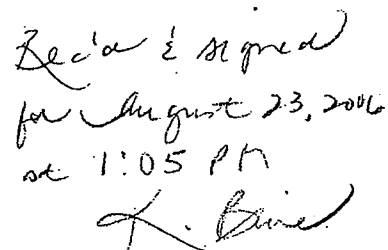 Rec'd & signed
for August 23, 2006
at 1:05 PM
K.